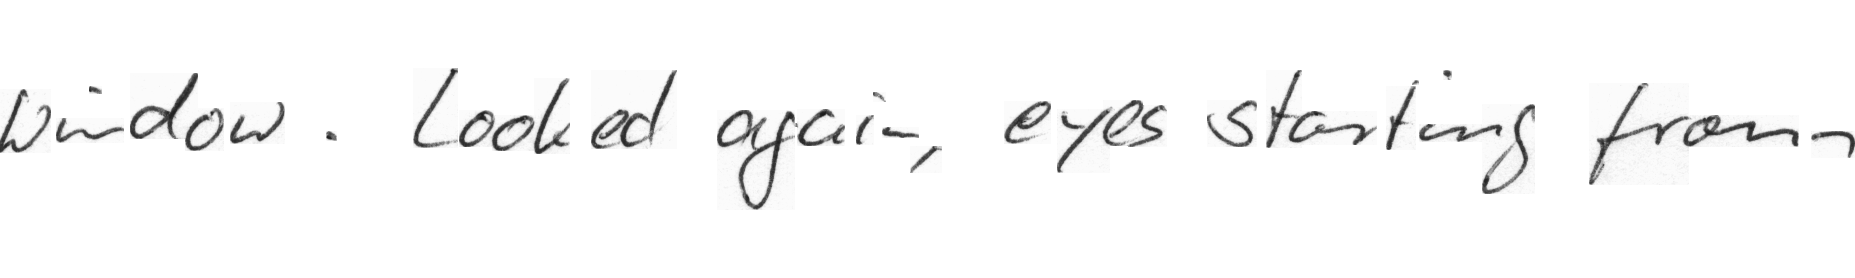 window. Looked again, eyes starting from